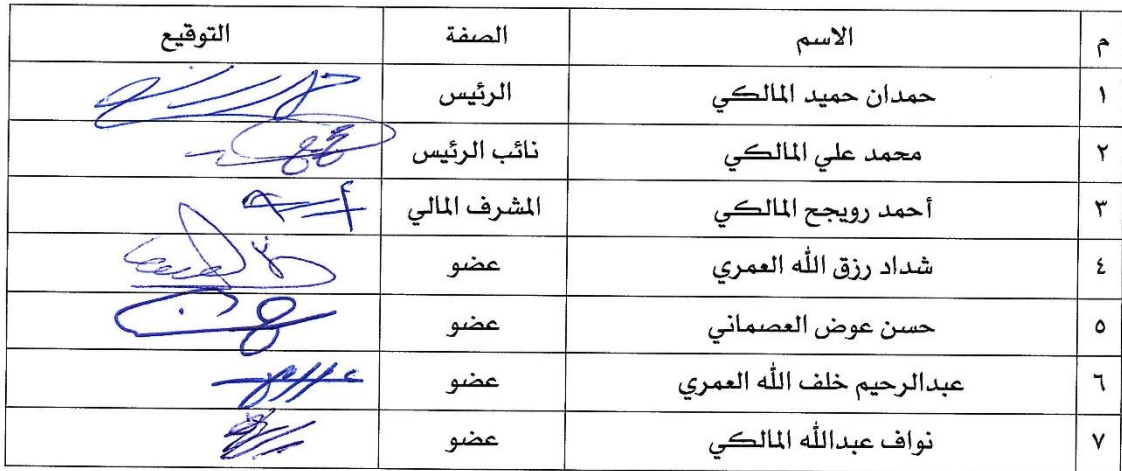 م الاسم الصفة التوقيع
١ حمدان حميد المالكي الرئيس
٢ محمد علي المالكي نائب الرئيس
٣ أحمد رويجح المالكي المشرف المالي
٤ شداد رزق الله العمري عضو
٥ حسن عوض العصماني عضو
٦ عبدالرحيم خلف الله العمري عضو
٧ نواف عبدالله المالكي عضو